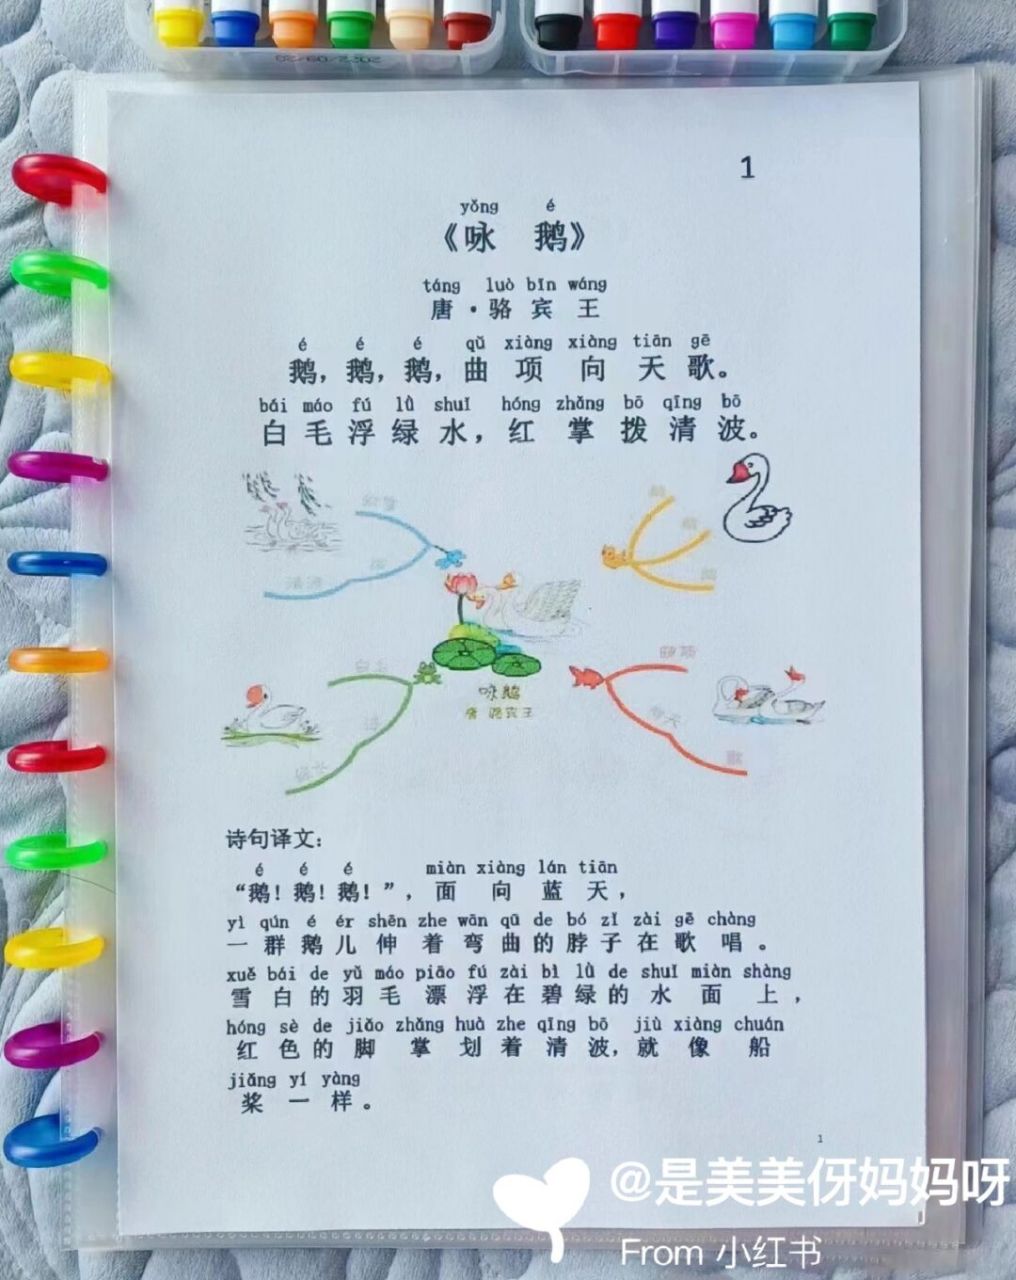 1
yǒng é
《咏 鹅》
táng luò bīn wáng
唐·骆宾王
é é é qǔ xiàng xiàng tiān gē
鹅，鹅，鹅，曲项向天歌。
bái máo fú lǜ shuǐ hóng zhǎng bō qīng bō
白毛浮绿水，红掌拨清波。
红掌
拨
清波
曲项
向天
歌
白毛
浮
绿水
咏鹅
唐 骆宾王
诗句译文：
é é é miàn xiàng lán tiān
“鹅！鹅！鹅！”，面向蓝天，
yì qún é ér shēn zhe wān qū de bó zǐ zài gē chàng
一群鹅儿伸着弯曲的脖子在歌唱。
xuě bái de yǔ máo piāo fú zài bì lǜ de shuǐ miàn shàng
雪白的羽毛漂浮在碧绿的水面上，
hóng sè de jiǎo zhǎng huà zhe qīng bō jiù xiàng chuán
红色的脚掌划着清波，就像船
jiǎng yí yàng
桨一样。
1
@是美美伢妈妈呀
From 小红书